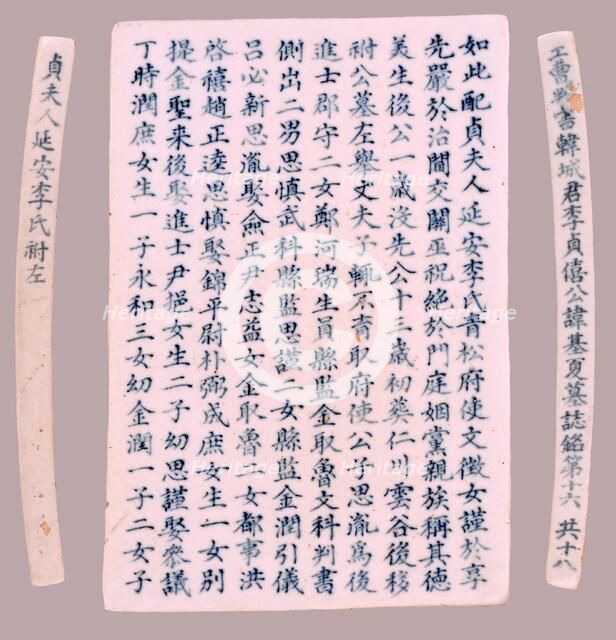 工曹判書韓城君李貞僖公諱基夏墓誌銘第十六 共十八
如此配貞夫人延安李氏青松府使文徵女謹於享
先嚴於治閫交關巫祝絶於門庭姻黨親族稱其德
美生後公一歲沒先公十三歲初葬仁川雲谷後移
祔公墓左與丈夫子輒不育取府使公子思胤爲後
進士郡守二女鄭河瑞生員縣監金取魯文科判書
側出二男思慎武科縣監思謹二女縣監金潤引儀
呂必新思胤娶僉正尹志益女金取魯一女都事洪
啓禧趙正逵思慎娶錦平尉朴弼成庶女生一女別
提金聖来後娶進士尹挹女生二子幼思謹娶叅議
丁時潤庶女生一子永和三女幼金潤一子二女子
貞夫人延安李氏祔左
Heritage
Heritage
Heritage
Heritage
Heritage
Heritage